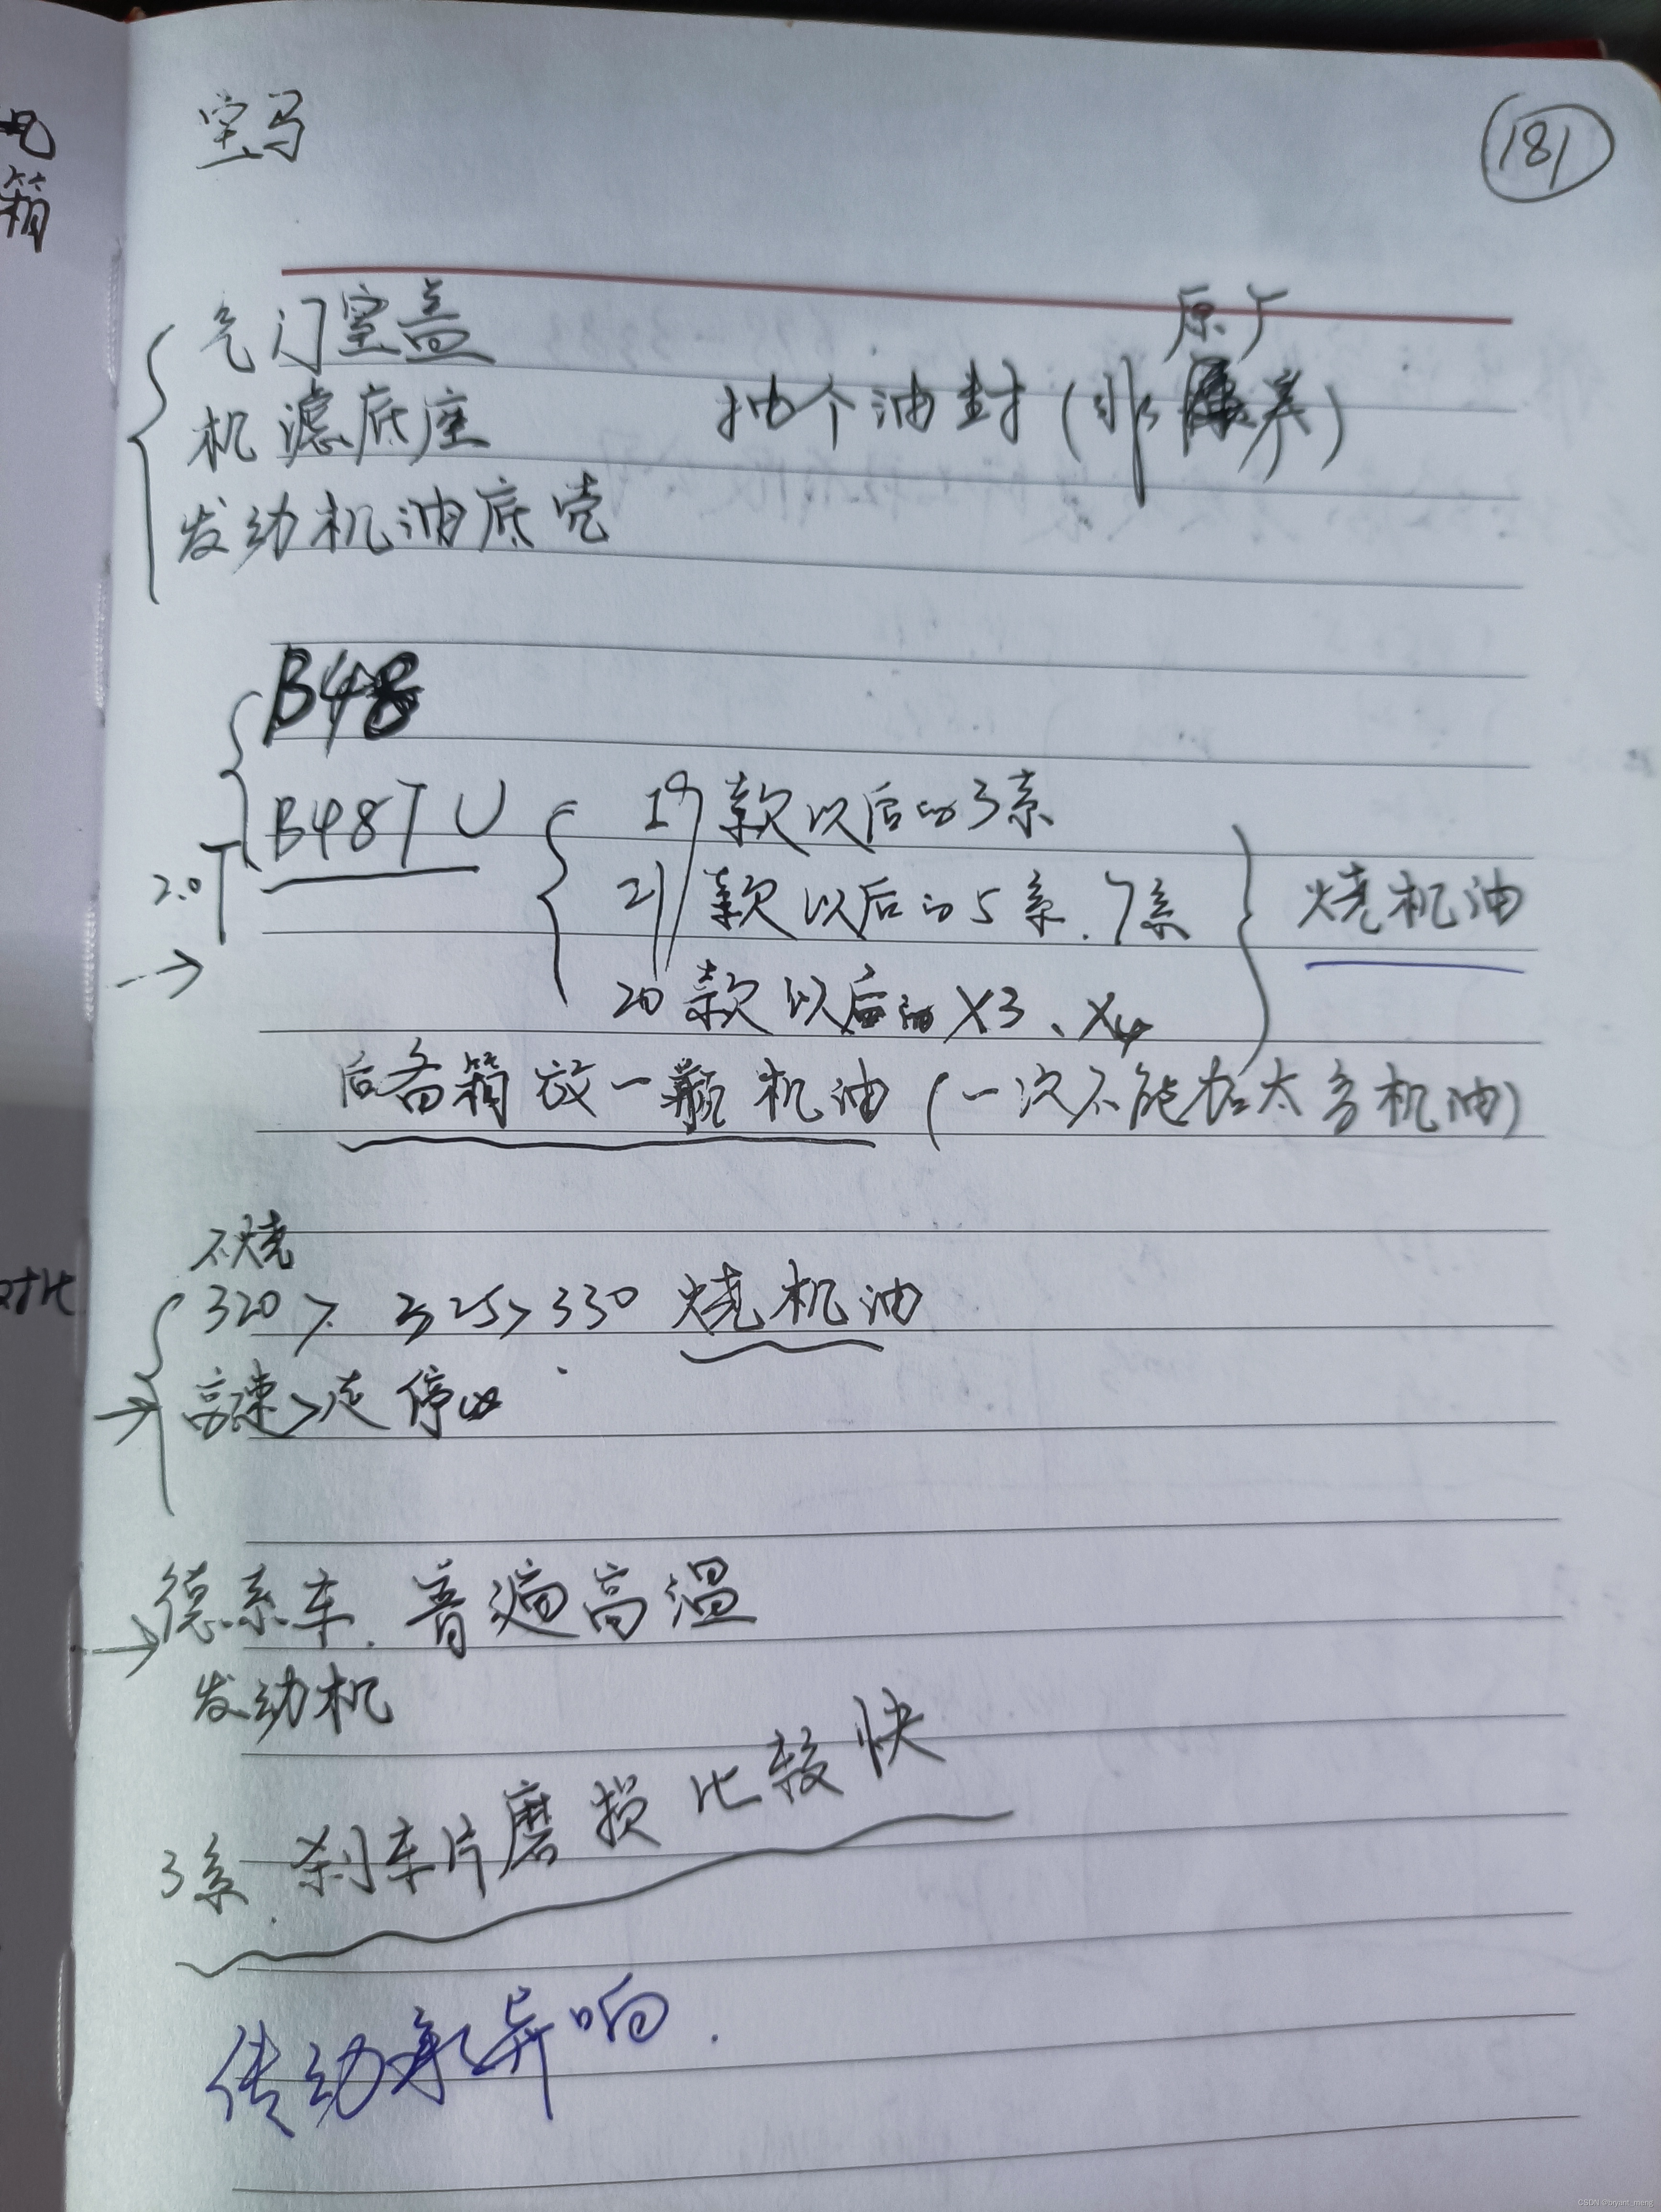 宝马
181
气门室盖
原厂
机滤底座 抽个油封(非 养)
发动机油底壳
B48
2.0T
B48TU
19款以后的3系
21款以后的5系.7系
烧机油
20款以后的X3、X4
后备箱放一瓶机油(一次不能加太多机油)
不烧
320 > 325 > 330 烧机油
高速>走停
德系车.普遍高温
发动机
3系.刹车片磨损比较快
传动 异响.
箱
对比
CSDN @bryant_meng